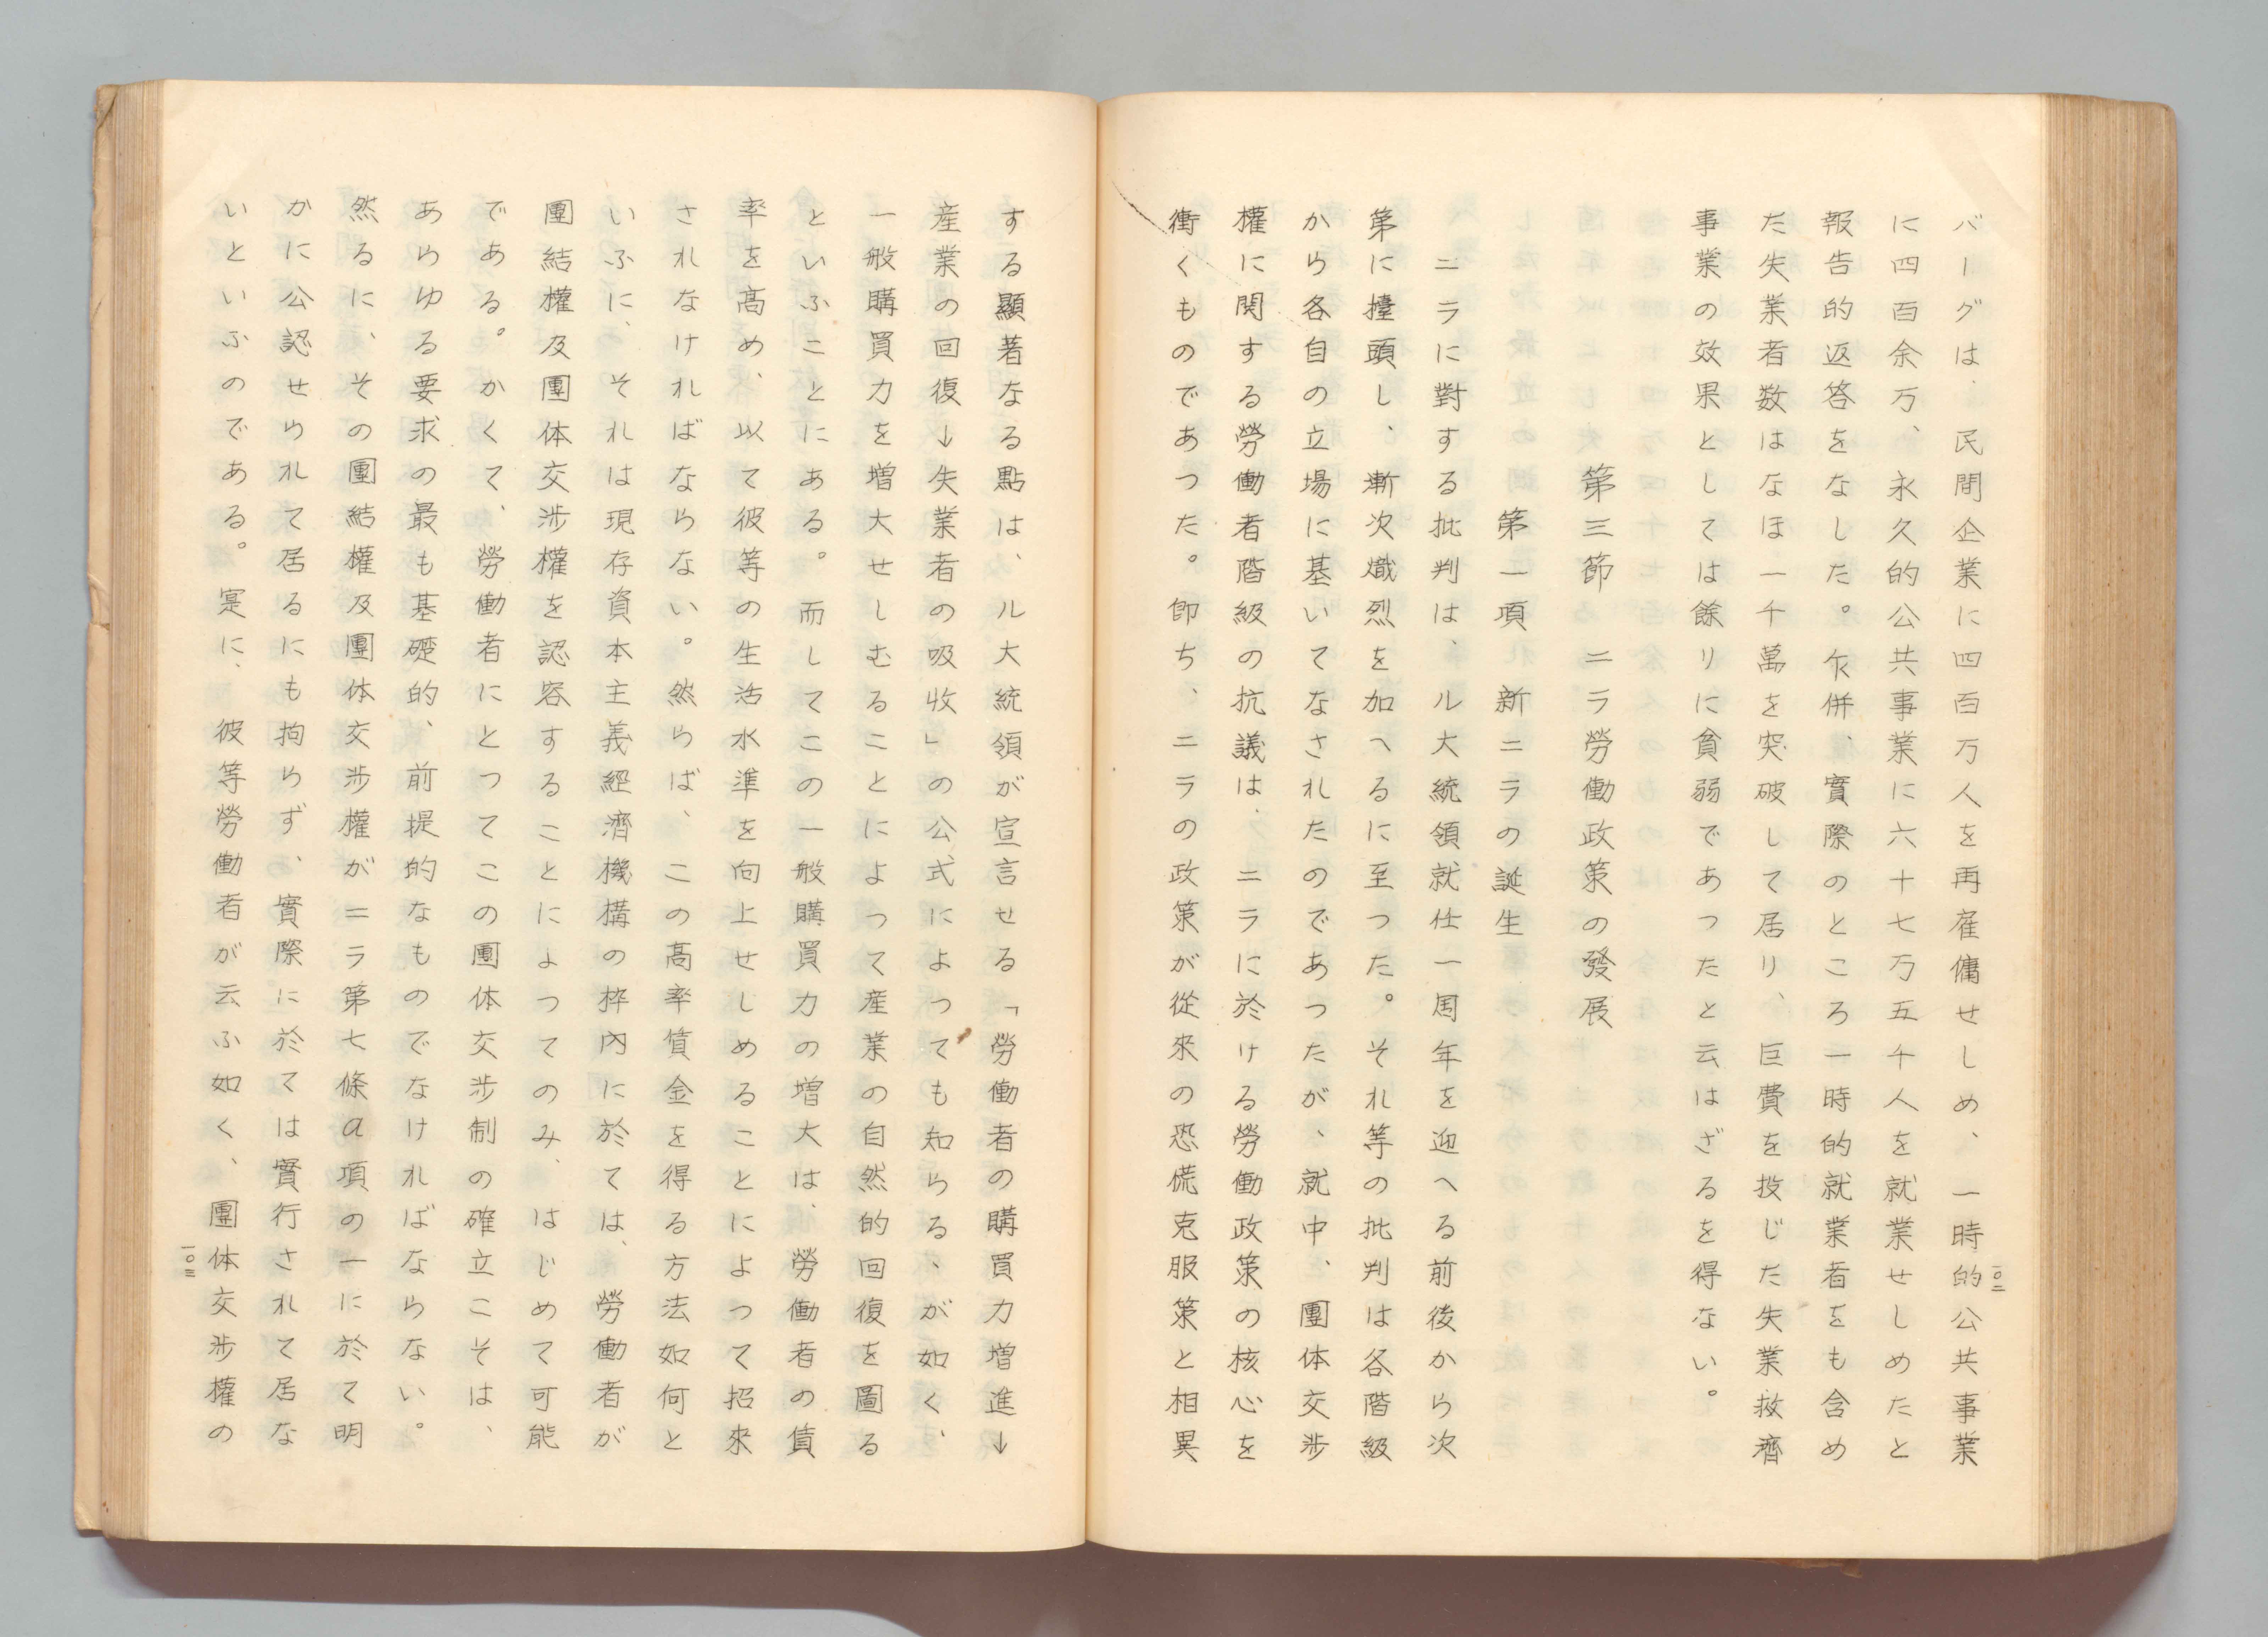 バーグは、民間企業に四百万人を再雇傭せしめ、一時的公共事業
に四百余万、永久的公共事業に六十七万五千人を就業せしめたと
報告的返答をなした。乍併、實際のところ一時的就業者をも含め
た失業者数はなほ一千萬を突破して居り、巨費を投じた失業救濟
事業の效果としては餘りに貧弱であつたと云はざるを得ない。
第三節 ニラ勞働政策の發展
第一項 新ニラの誕生
ニラに對する批判は、ル大統領就仕一周年を迎へる前後から次
第に擡頭し、漸次熾烈を加へるに至つた。それ等の批判は各階級
から各自の立場に基いてなされたのであつたが、就中、團体交渉
權に関する勞働者階級の抗議は、ニラに於ける勞働政策の核心を
衝くものであつた。卽ち、ニラの政策が從來の恐慌克服策と相異
一〇二
する顯著なる點は、ル大統領が宣言せる「勞働者の購買力増進→
産業の回復→失業者の吸收」の公式によつても知らる、が如く、
一般購買力を増大せしむることによつて産業の自然的回復を圖る
といふことにある。而してこの一般購買力の増大は、勞働者の賃
率を髙め、以て彼等の生活水準を向上せしめることによつて招來
されなければならない。然らば、この髙率賃金を得る方法如何と
いふに、それは現存資本主義經濟機構の枠内に於ては、勞働者が
團結權及團体交渉權を認容することによつてのみ、はじめて可能
である。かくて、勞働者にとつてこの團体交渉制の確立こそは、
あらゆる要求の最も基礎的、前提的なものでなければならない。
然るに、その團結權及團体交渉權がニラ第七條a項の一に於て明
かに公認せられて居るにも拘らず、實際に於ては實行されて居な
いといふのである。寔に、彼等勞働者が云ふ如く、團体交渉權の
一〇三